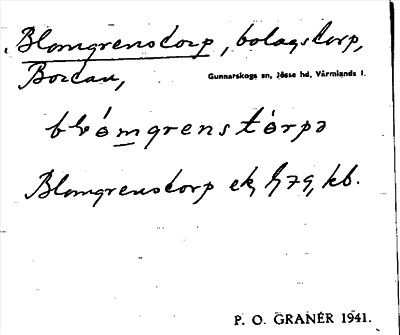 Blomgrenstorp, bolagstorp,
Borcan,
Gunnarskogs sn, Jösse hd, Värmlands l.
blómgrenstòrpə
Blomgrenstorp ek, kb.
P. O. GRANÉR 1941.